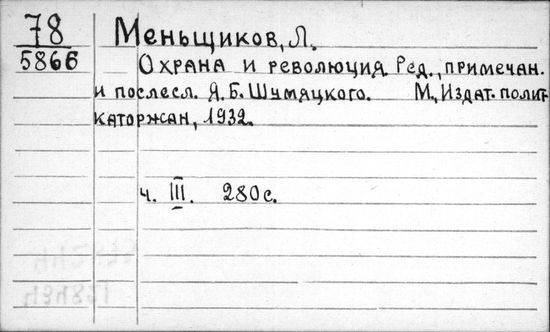 78
5866
Меньщиков, Л.
Охрана и революция. Ред., примечан.
и послесл. Я.Б. Шумяцкого. М., Издат. полит-
каторжан, 1932.
ч. III. 280с.